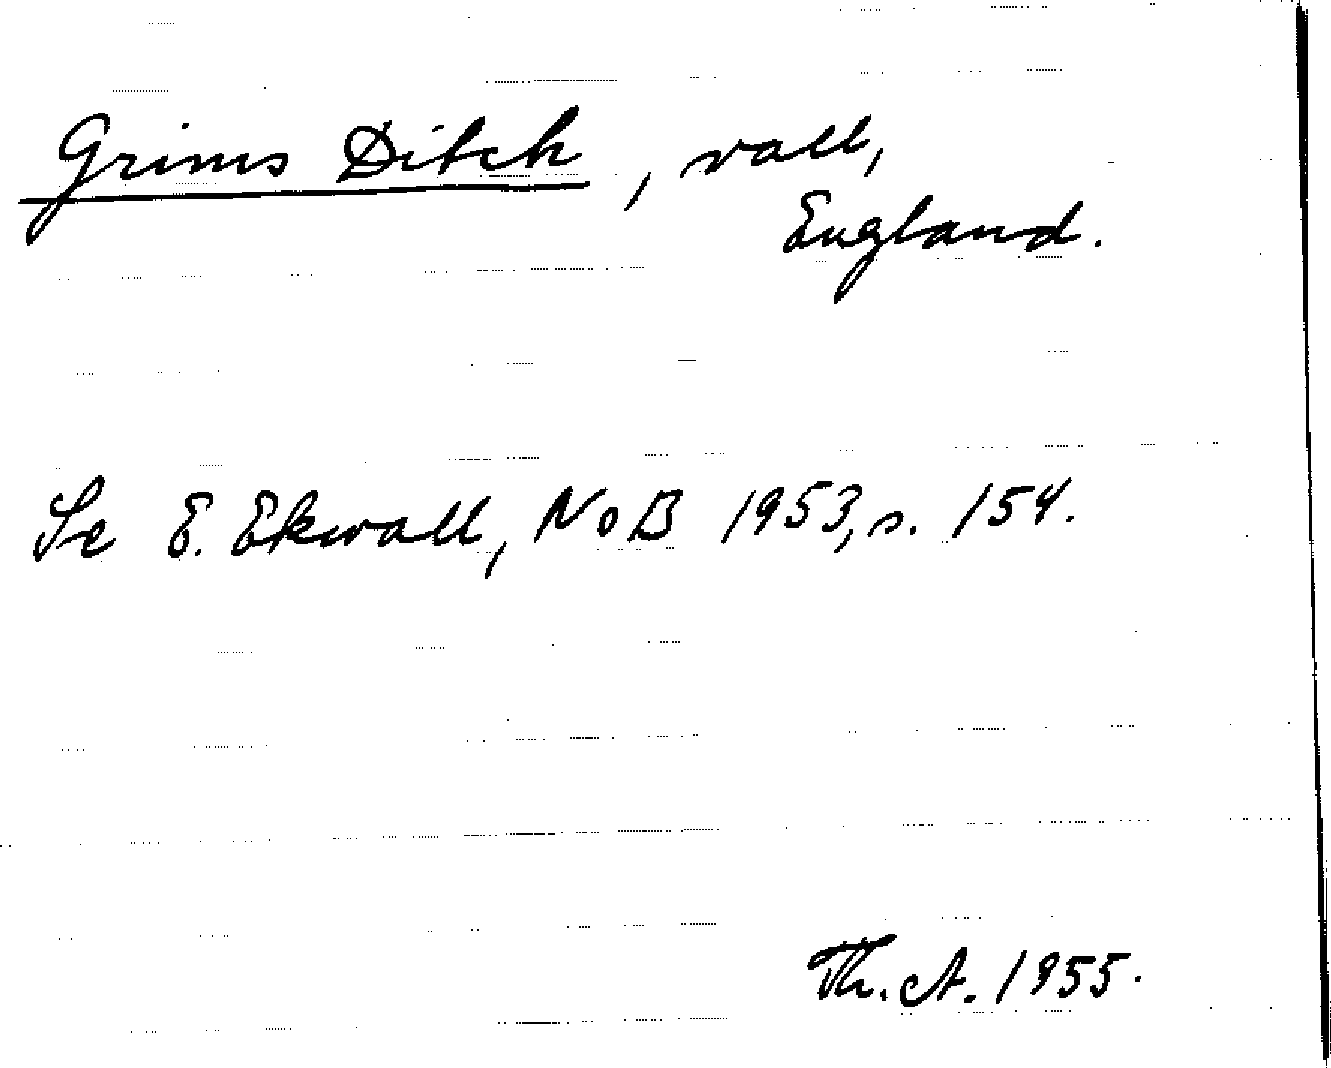 Grims Ditch, vall,
England.
Se E. Ekwall, NoB 1953, s. 154.
Th. A. 1955.